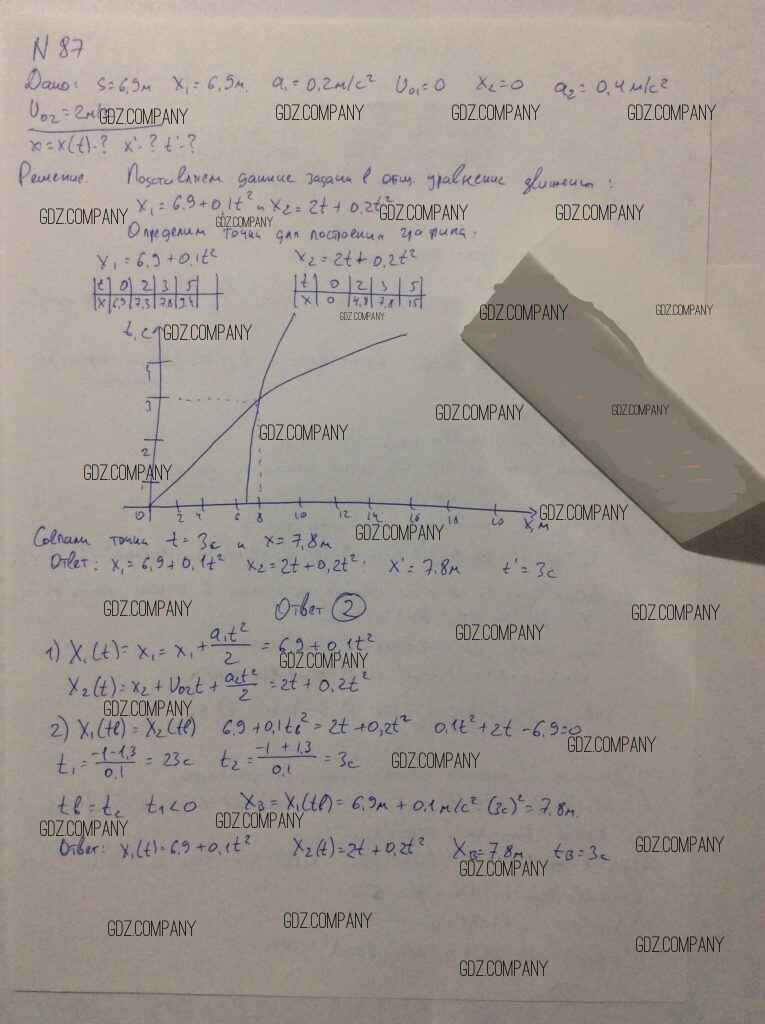 N 87
Дано: S=6,9м x₁=6,9м. a₁=0,2м/с² U₀₁=0 x₂=0 a₂=0,4м/с²
U₀₂=2м/с
GDZ.COMPANY GDZ.COMPANY GDZ.COMPANY GDZ.COMPANY
x=x(t)-? x'-? t'-?
Решение. Подставляем данные задачи в общ. уравнение движения:
x₁=6,9+0,1t² и x₂=2t+0,2t²
GDZ.COMPANY GDZ.COMPANY GDZ.COMPANY GDZ.COMPANY
Определим точки для построения графика.
x₁=6,9+0,1t² x₂=2t+0,2t²
|t|0|2|3|5| |t|0|2|3|5
|x|6,9|7,3|7,8|9,4| |x|0|4,8|7,8|15|
GDZ.COMPANY GDZ.COMPANY GDZ.COMPANY
t,с GDZ.COMPANY
5
3
GDZ.COMPANY GDZ.COMPANY
GDZ.COMPANY
2
GDZ.COMPANY
1
0 2 4 6 8 10 12 14 16 18 20 x,м
GDZ.COMPANY
Совпали точки t=3с и x=7,8м
GDZ.COMPANY
Ответ: x₁=6,9+0,1t² x₂=2t+0,2t²; x'=7,8м t'=3с
Ответ 2
GDZ.COMPANY GDZ.COMPANY GDZ.COMPANY
1) X₁(t)=x₁=x₁+a₁t²/2=6,9+0,1t²
GDZ.COMPANY
X₂(t)=x₂+U₀₂t+a₂t²/2=2t+0,2t²
GDZ.COMPANY
2) X₁(tв)=X₂(tв) 6,9+0,1tв²=2t+0,2t² 0,1t²+2t-6,9=0
GDZ.COMPANY
t₁=-1-1,3/0,1=23с t₂=-1+1,3/0,1=3с
GDZ.COMPANY
tв=t₂ t₁<0 Xв=X₁(tв)=6,9м+0,1м/с²(3с)²=7,8м.
GDZ.COMPANY GDZ.COMPANY
Ответ: x₁(t)=6,9+0,1t² X₂(t)=2t+0,2t² Xв=7,8м tв=3с
GDZ.COMPANY GDZ.COMPANY
GDZ.COMPANY GDZ.COMPANY GDZ.COMPANY
GDZ.COMPANY